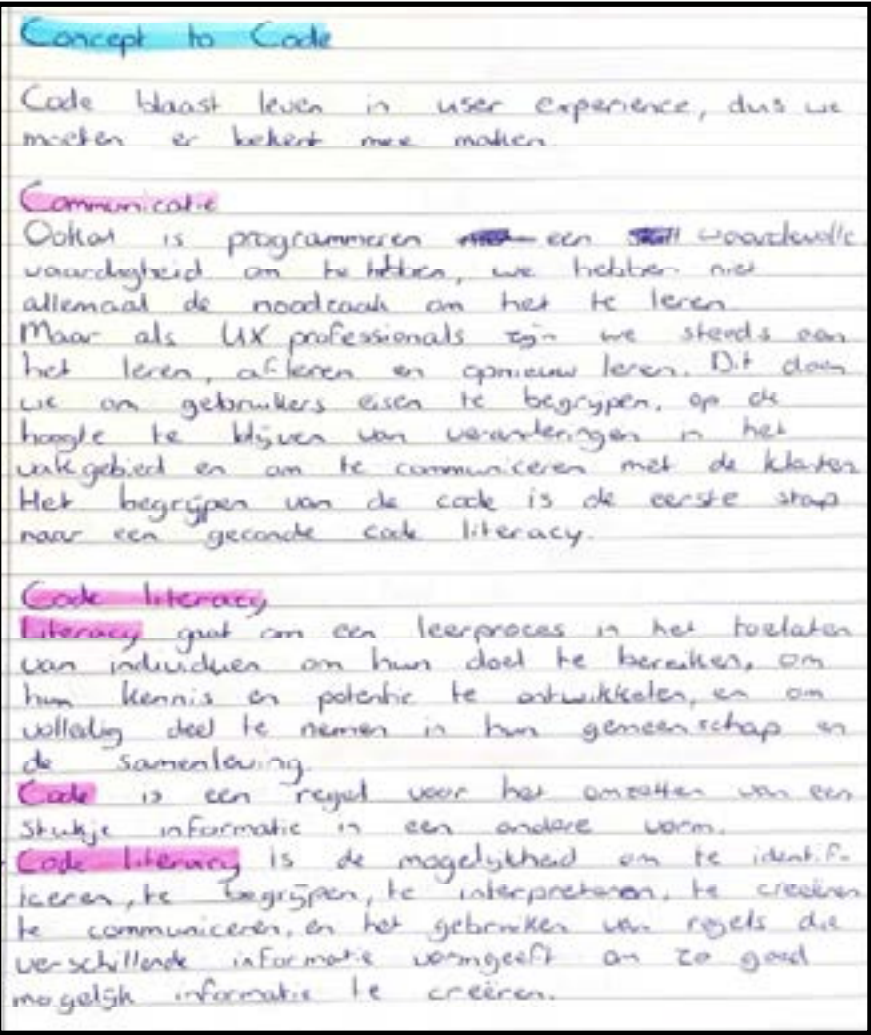 Concept to Code
Code blaast leven in user experience, dus we
moeten er bekent mee maken
Communicatie
Ookal is programmeren een waardevolle
vaardigheid om te hebben, we hebben niet
allemaal de noodzaak om het te leren
Maar als UX professionals zijn we steeds aan
het leren, afleren en opnieuw leren. Dit doen
we om gebruikers eisen te begrypen, op de
hoogte te blijven van veranderingen in het
vakgebied en om te communiceren met de klanten
Het begrijpen van de code is de eerste stap
naar een gezonde code literacy.
Code literacy
Literacy gaat om een leerproces in het toelaten
van individuen om hun doel te bereiken, om
hun kennis en potentie te ontwikkelen, en om
volledig deel te nemen in hun gemeenschap en
de samenleving.
Code is een regel voor het omzetten van een
stukje informatie in een andere vorm.
Code literacy is de mogelykheid om te identifi-
iceren, te begrijpen, te interpreteren, te creeëren
te communiceren, en het gebruiken van regels die
verschillende informatie vormgeeft om zo goed
mogelijk informatie te creëren.